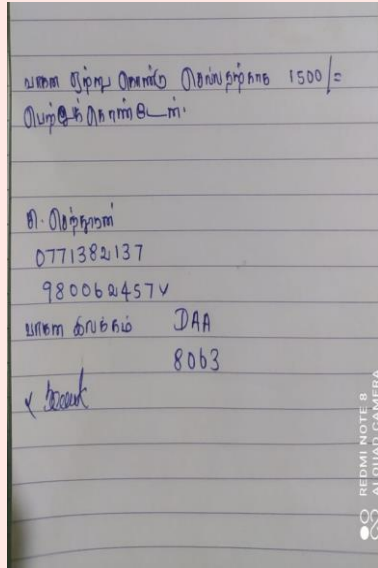 வாழை ஏற்று கொண்டு செல்வதற்காக 1500/=
பெற்றுக் கொண்டேன்.
0771382137
980062457V
வாகன இலக்கம் DAA
8063
REDMI NOTE 8
AI QUAD CAMERA